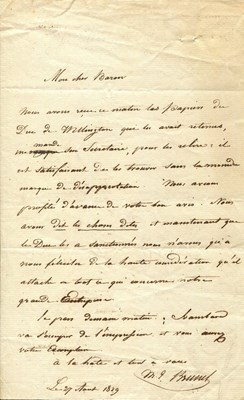 Mon cher Baron
Nous avons reçu ce matin les Papiers du
Duc de Wellington que les avait retenus,
me mande son Secretaire, pour les relire; il
est satisfaisant de les trouver sans la moindre
marque de Nous avons
profité d'avance de votre bon avis. Nous
avons les choses et maintenant que
le Duc les a sanctionnés nous n'avons qu'à
nous féliciter de la haute considération qu'il
attache a tout ce qui concerne notre
grande Entreprise
Je pars demain matin;
va s'occuper de l'impression et vous aurez
votre Exemplaire
à la hâte et tout à vous
Brunel
Le 27 Aout 1829